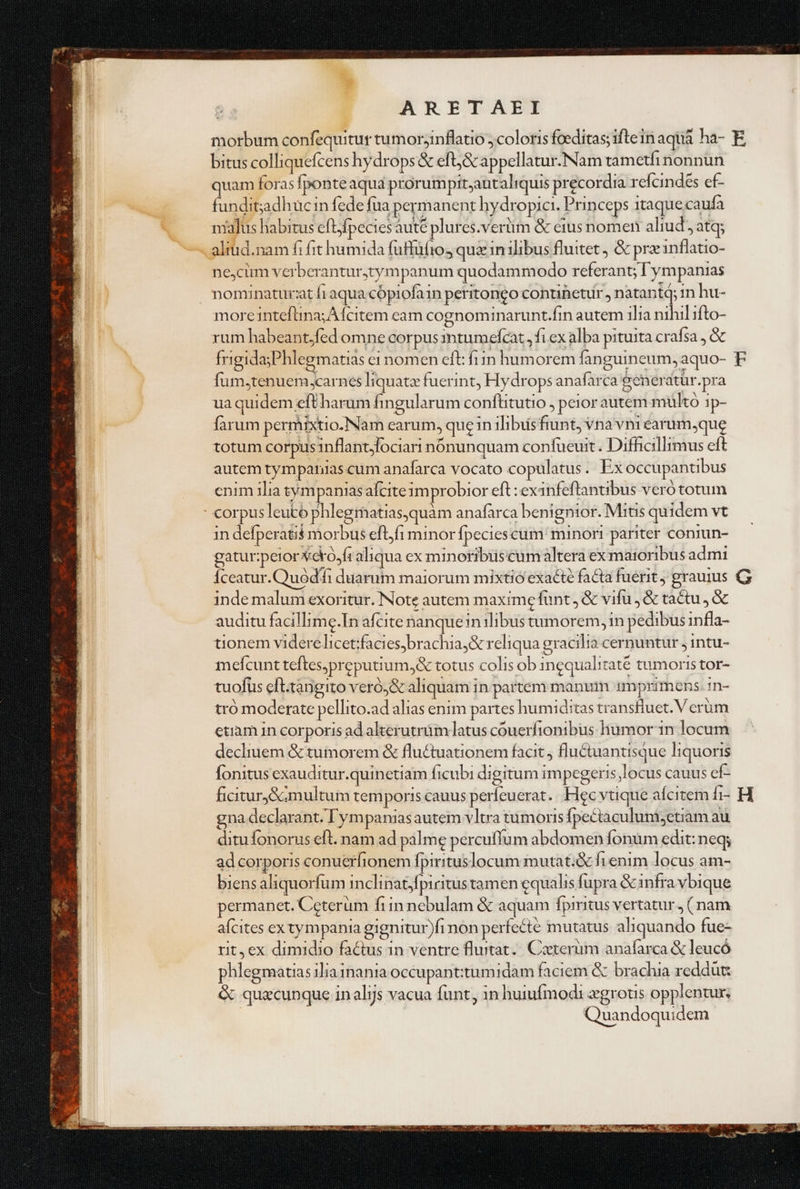 ARETAEI
morbum confequitur tumor,inflatio, coloris fœditas; ifte in aquā ha- E
bitus colliquefcens hydrops & eft,& appellatur.Nam tametfi nonnun
quam foras fponte aqua prorumpit,aut aliquis pręcordia refcindēs ef-
fundit;adhūc in fede fua permanent hydropici. Princeps itaque caufa
malus habitus eft,fpecies autē plures.verùm & eius nomen aliud, atq;
aliud.nam fi fit humida fuffufio, quæ in ilibus fluitet, & præ inflatio-
ne,cùm verberantur,tympanum quodammodo referant;Tympanias
nominatur:at fi aqua cōpiofa in peritonęo continetur, natantq; in hu-
more inteftina;Afcitem eam cognominarunt.fin autem ilia nihil ifto-
rum habeant,fed omne corpus intumefcat, fi ex alba pituita crafsa, &
frigida;Phlegmatias ei nomen eft: fi in humorem fanguineum, aquo- F
fum,tenuem,carnes liquatæ fuerint, Hydrops anafarca generatur.pra
ua quidem eft harum fingularum conftitutio, peior autem multò ip-
farum permixtio.Nam earum, quę in ilibus fiunt, vna vni earum,quę
totum corpus inflant,fociari nōnunquam confueuit. Difficillimus eft
autem tympanias cum anafarca vocato copulatus. Ex occupantibus
enim ilia tympanias afcite improbior eft: ex infeftantibus verò totum
corpus leuco phlegmatias,quàm anafarca benignior. Mitis quidem vt
in defperatis morbus eft,fi minor fpecies cum minori pariter coniun-
gatur:peior verò,fi aliqua ex minoribus cum altera ex maioribus admi
fceatur.Quòd fi duarum maiorum mixtio exactè facta fuerit, grauius G
inde malum exoritur. Notę autem maximę funt, & vifu, & tactu, &
auditu facillimę.In afcite nanque in ilibus tumorem, in pedibus infla-
tionem videre licet:facies,brachia,& reliqua gracilia cernuntur, intu-
mefcunt teftes,pręputium,& totus colis ob inęqualitatē tumoris tor-
tuofus eft.tangito verò,& aliquam in partem manum imprimens. in-
trò moderate pellito.ad alias enim partes humiditas transfluet.Verùm
etiam in corporis ad alterutrùm latus cōuerfionibus humor in locum
decliuem & tumorem & fluctuationem facit, fluctuantisque liquoris
fonitus exauditur.quinetiam ficubi digitum impegeris,locus cauus ef-
ficitur,& multum temporis cauus perfeuerat. Hęc vtique afcitem fi- H
gna declarant.Tympanias autem vltra tumoris fpectaculum,etiam au
ditu fonorus eft. nam ad palmę percuffum abdomen fonum edit: neq;
ad corporis conuerfionem fpiritus locum mutat.& fi enim locus am-
biens aliquorfum inclinat,fpiritus tamen ęqualis fupra & infra vbique
permanet. Cęterùm fi in nebulam & aquam fpiritus vertatur, ( nam
afcites ex tympania gignitur)fi non perfectè mutatus aliquando fue-
rit, ex dimidio factus in ventre fluitat. Cæterùm anafarca & leucō
phlegmatias ilia inania occupant:tumidam faciem & brachia reddūt:
& quæcunque in alijs vacua funt, in huiufmodi ægrotis opplentur.
Quandoquidem